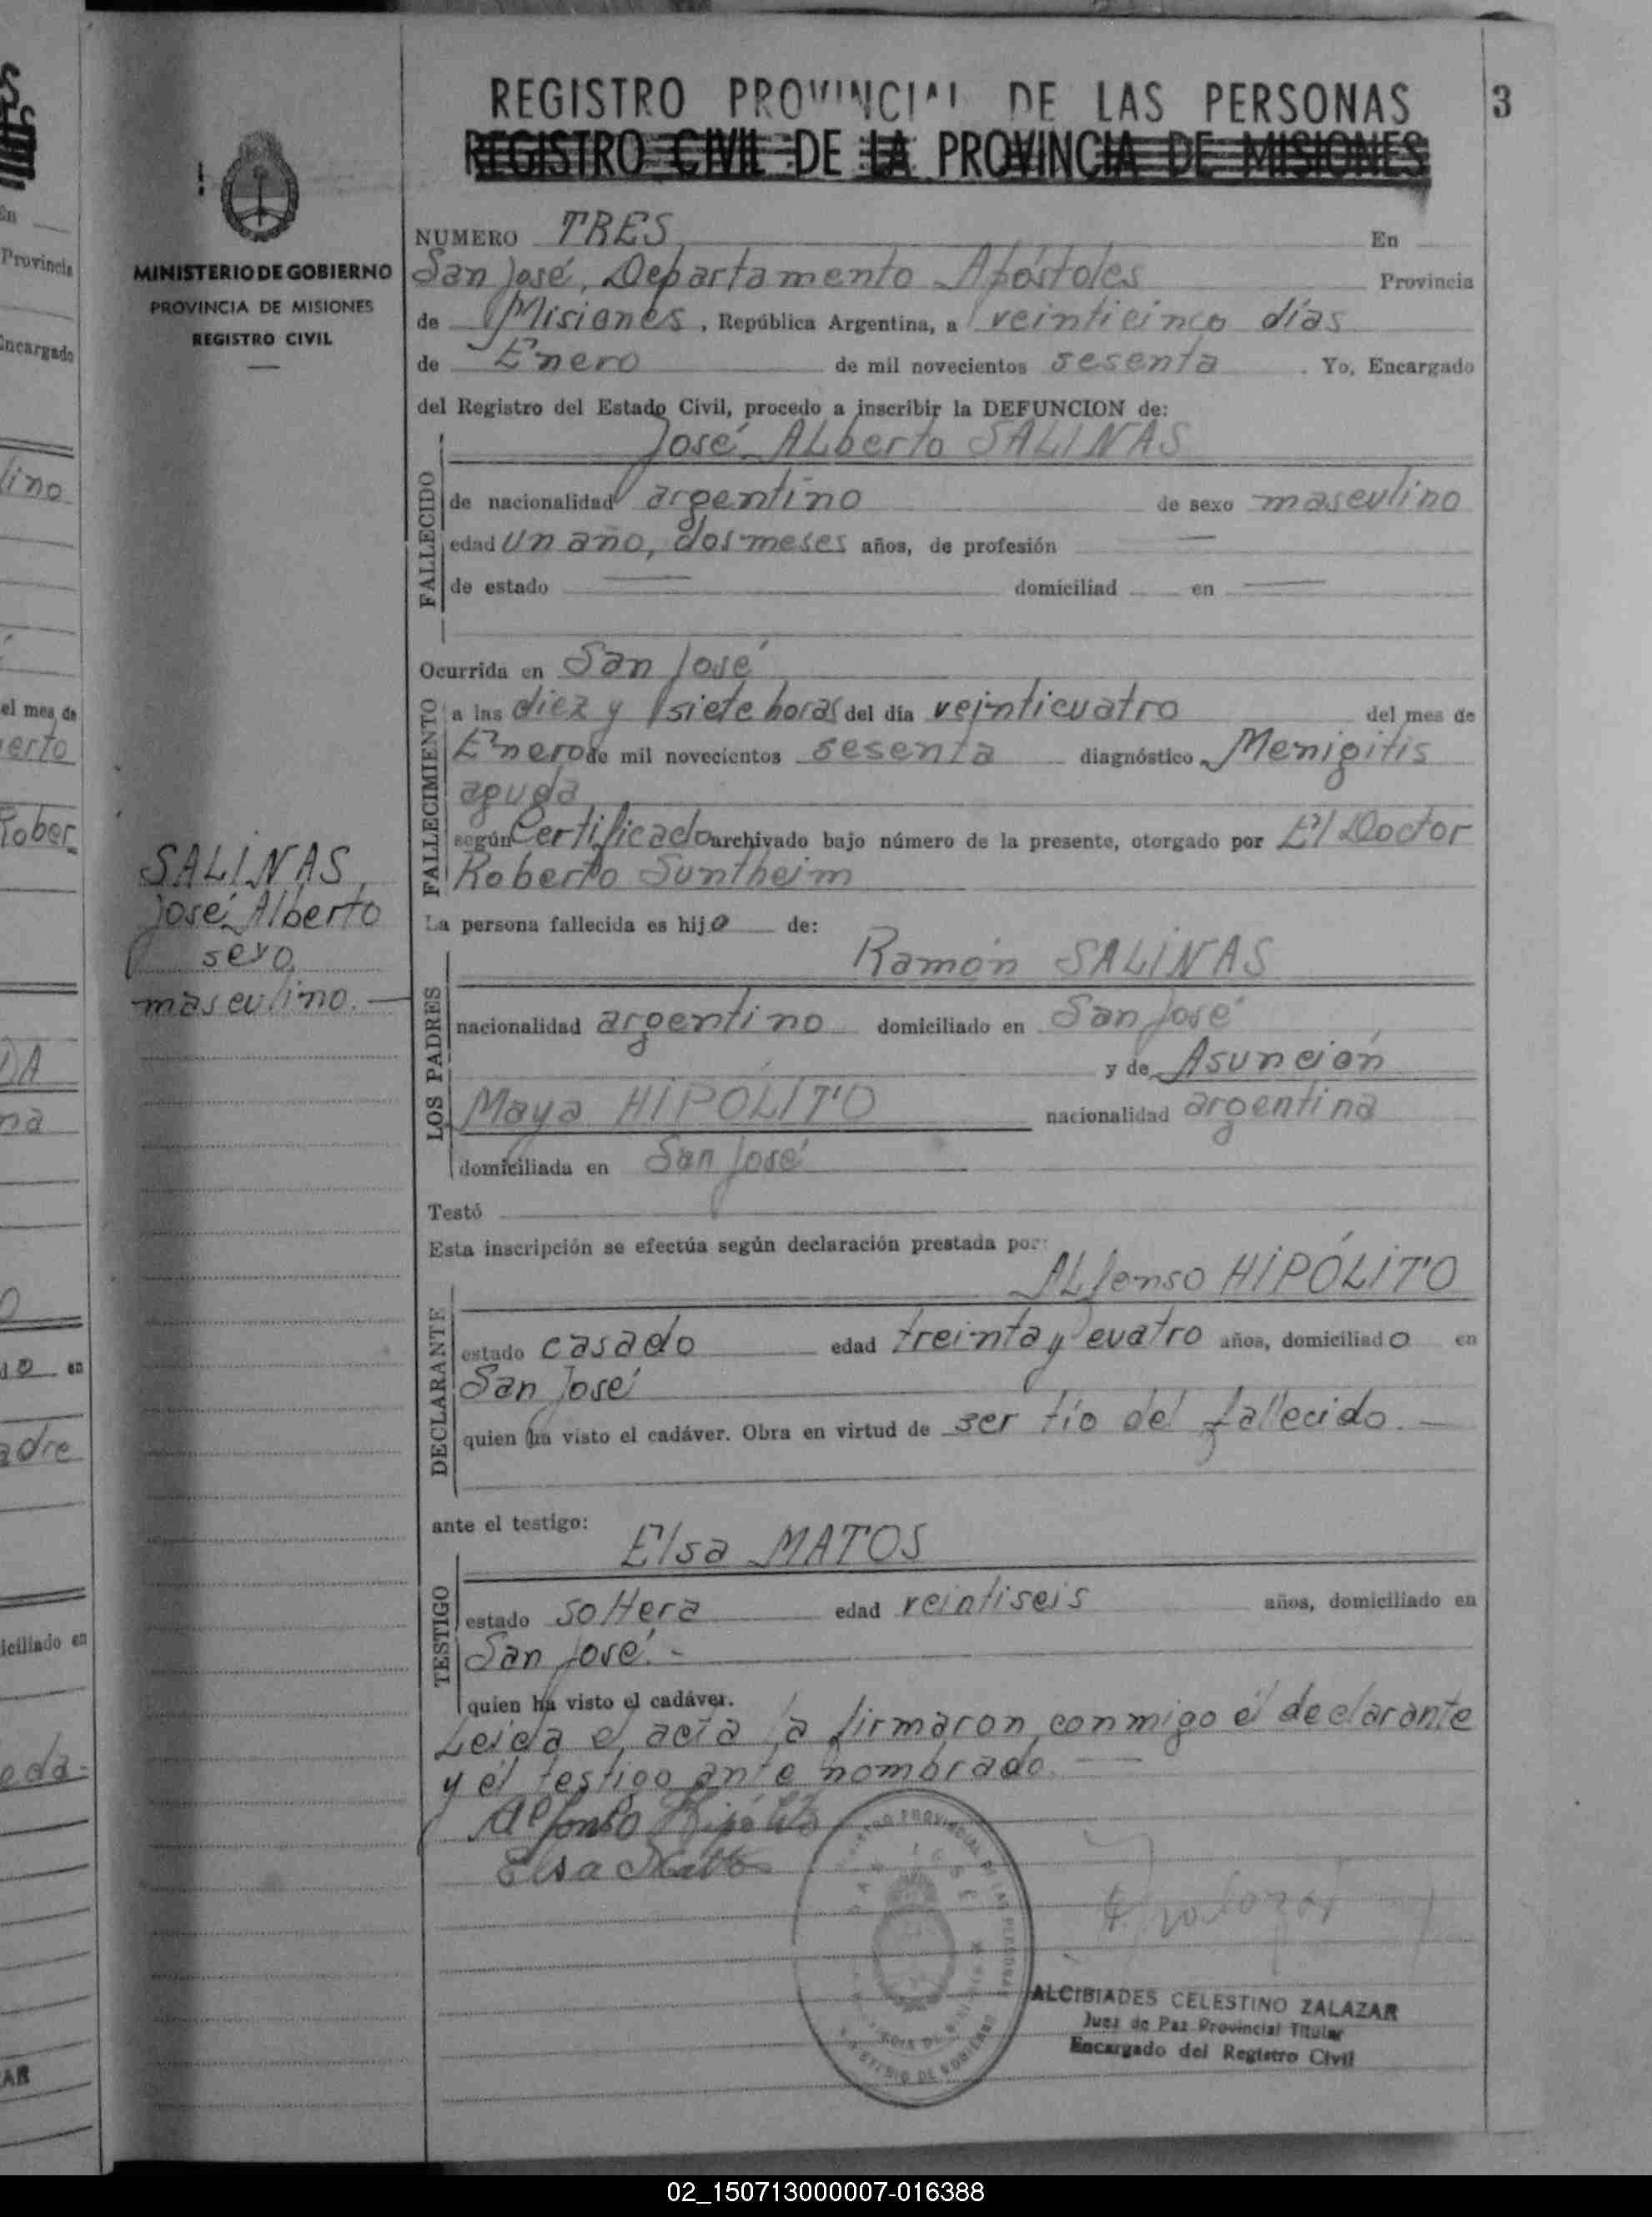 REGISTRO PROVINCIAL DE LAS PERSONAS
3
REGISTRO CIVIL DE LA PROVINCIA DE MISIONES
MINISTERIO DE GOBIERNO
PROVINCIA DE MISIONES
REGISTRO CIVIL
NUMERO TRES En
San José, Departamento Apóstoles Provincia
de Misiones, República Argentina, a veinticinco días
de Enero de mil novecientos sesenta. Yo, Encargado
del Registro del Estado Civil, procedo a inscribir la DEFUNCION de:
José ALberto SALINAS
FALLECIDO
de nacionalidad argentino de sexo masculino
edad un año, dos meses años, de profesión —
de estado — domiciliad en —
Ocurrida en San José
FALLECIMIENTO
a las diez y siete horas del día veinticuatro del mes de
Enero de mil novecientos sesenta diagnóstico Menigitis
aguda
según Certificado archivado bajo número de la presente, otorgado por El Doctor
Roberto Suntheim
SALINAS,
José Alberto
sexo
masculino.—
La persona fallecida es hijo de:
Ramón SALINAS
LOS PADRES
nacionalidad argentino domiciliado en San José
y de Asunción
Maya HIPÓLITO nacionalidad argentina
domiciliada en San José
Testó
Esta inscripción se efectúa según declaración prestada por:
ALfonso HIPÓLITO
DECLARANTE
estado casado edad treinta y cuatro años, domiciliado en
San José
quien ha visto el cadáver. Obra en virtud de ser tío del fallecido.—
ante el testigo:
Elsa MATOS
TESTIGO
estado soltera edad veintiseis años, domiciliado en
San José.-
quien ha visto el cadáver.
Leída el acta la firmaron conmigo él declarante
y él testigo ante nombrado.—
Alfonso Hipólito
Elsa Matto
REGISTRO PROVINCIAL DE LAS PERSONAS
SAN JOSE
MINISTERIO DE GOBIERNO
ALCIBIADES CELESTINO ZALAZAR
Juez de Paz Provincial Titular
Encargado del Registro Civil
02_150713000007-016388